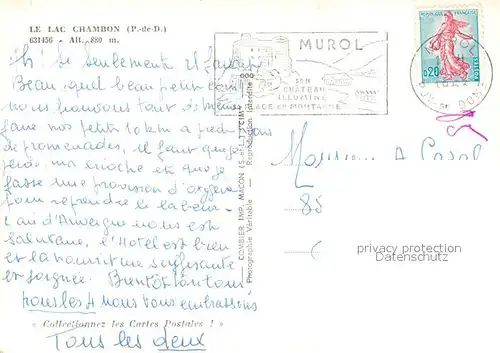 LE LAC CHAMBON (P.-de-D.)
631456 - Alt. 880 m.
Ah! si seulement il faisait
Beau, quel beau petit coin
nous passons tout de même
faire nos petits 10 km à pied
de promenades, il faut que je
ma et que je
fasse une provision d'oxygène
pour reprendre le labeur.
L'air d'Auvergne nous est
salutaire, l'Hotel est bien
et la nourriture suffisante
et soignée. Bientôt
pous les 4 nous vous embrassons
« Collectionnez les Cartes Postales ! »
Tous les deux
COMBIER IMP. MACON (S.-et-L.) "CIM"
Photographie Véritable - Reproduction Interdite
MUROL
SON
CHATEAU
ILLUMINÉ
PLAGE en MONTAGNE
RÉPUBLIQUE FRANÇAISE
0,20
POSTES
MUROL
PUY DE DOME
Monsieur A
85
privacy protection
Datenschutz